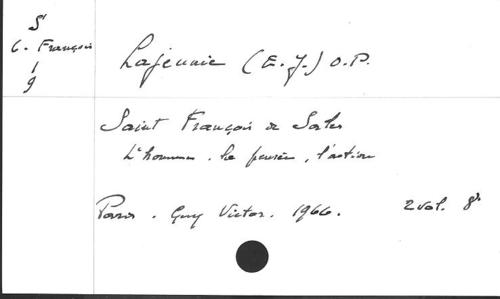 S
6. François
1
9
Lajeunie (E. J.) O.P.
Saint François de Sales
L'homme. la pensée, l'action
Paris. Guy Victor. 1966. 2 vol. 8°